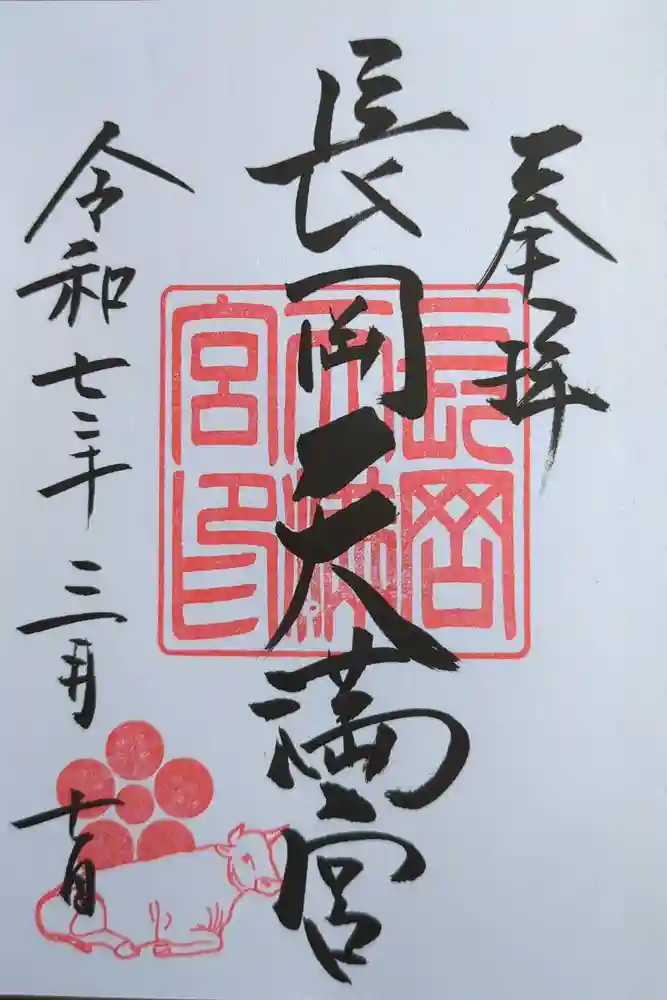 奉拝
長岡天満宮
令和七年三月十日
長岡
天満
宮印